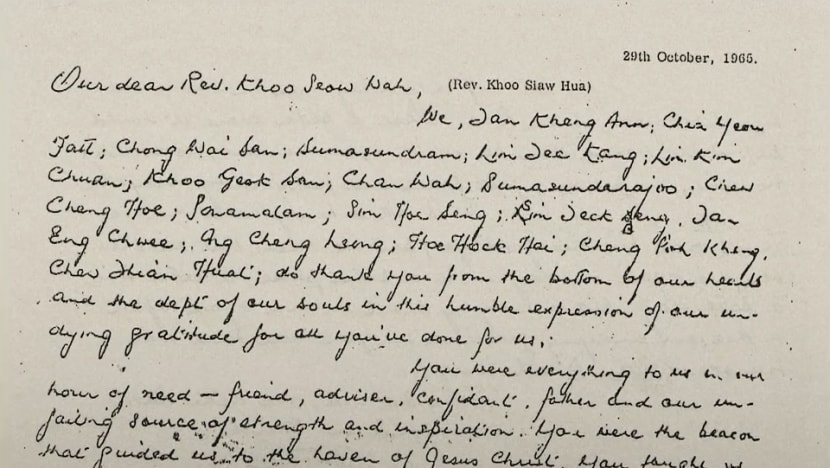 29th October, 1965.
Our dear Rev. Khoo Seow Wah, (Rev. Khoo Siaw Hua)
We, Tan Kheng Ann; Chia Yeow
Fatt; Chong Wai San; Sumasundram; Lim Tee Kang; Lim Kim
Chuan; Khoo Geok San; Chan Wah; Sumasundarajoo; Chew
Cheng Hoe; Somamalam; Sim Hoe Seng; Lim Teck San, Tan
Eng Chwee; Ng Cheng Leong; Hoe Hock Hai; Cheng Poh Kheng,
Chew Thian Huat; do thank you from the bottom of our hearts
and the dept of our souls in this humble expression of our un-
dying gratitude for all you've done for us.
You were everything to us in our
hour of need – friend, adviser, confidant, father and our un-
failing source of strength and inspiration. You were the beacon
that guided us to the haven of Jesus Christ. You taught